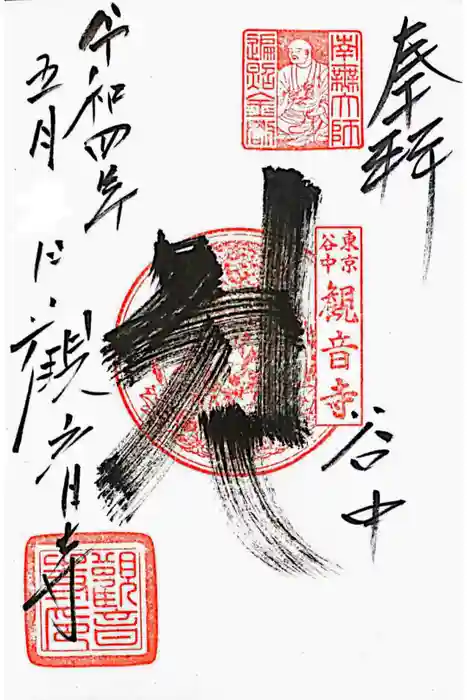 奉拝
南無大師
遍照金剛
東京
谷中
観音寺
谷中
令和四年
五月
観音寺
觀音